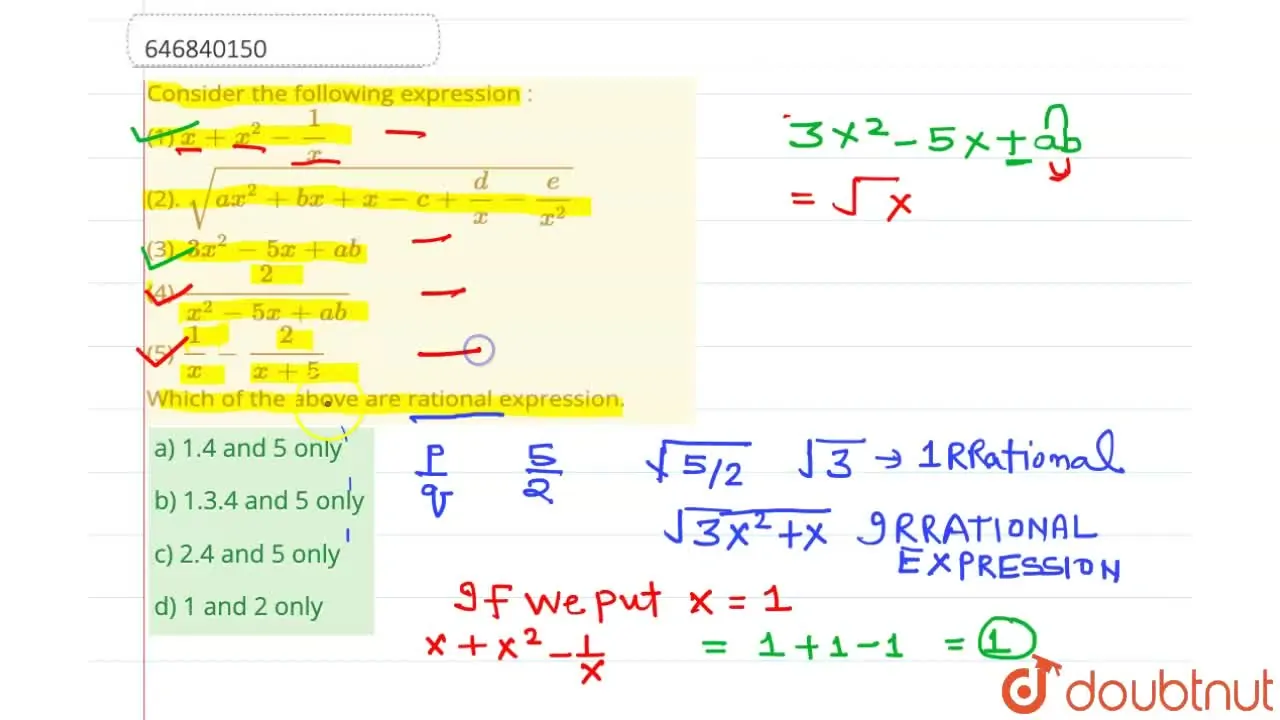 646840150
Consider the following expression :
(1) x + x² − 1/x
(2). √(ax² + bx + x − c + d/x − e/x²)
(3) 3x² − 5x + ab
(4) 2/(x² − 5x + ab)
(5) 1/x − 2/(x + 5)
Which of the above are rational expression.
a) 1.4 and 5 only
b) 1.3.4 and 5 only
c) 2.4 and 5 only
d) 1 and 2 only
3x² − 5x + ab
= √x
p/q 5/2 √5/2 √3 → IRRational
√3x²+x IRRATIONAL
EXPRESSION
If we put x = 1
x + x² − 1/x = 1 + 1 − 1 = 1
doubtnut